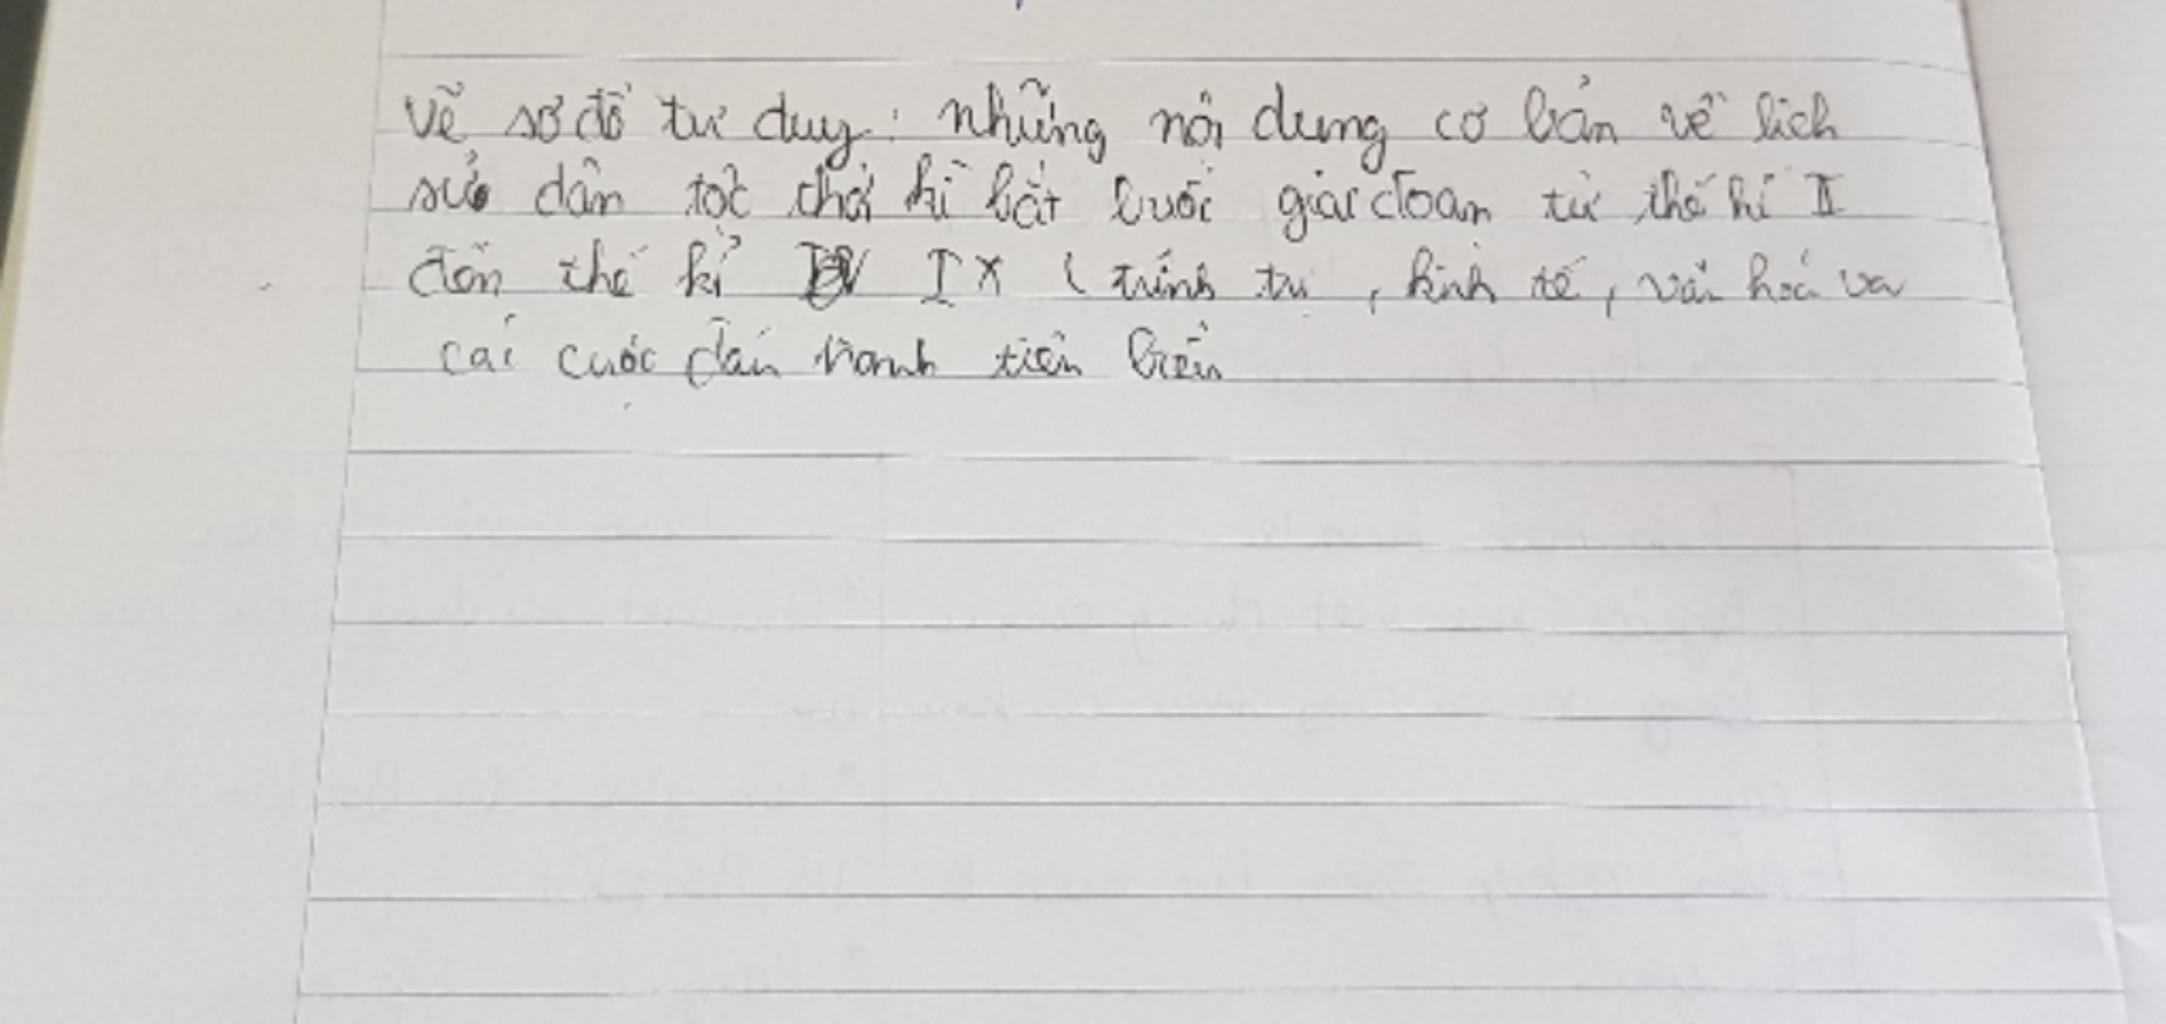 Vẽ sơ đồ tư duy: những nội dung cơ bản về lịch
sử dân tộc thời kì bắt buộc giai đoạn từ thế kỉ II
đến thế kỉ IX ( trính trị, kinh tế, văn hoá va
các cuộc đấu tranh tiêu biểu